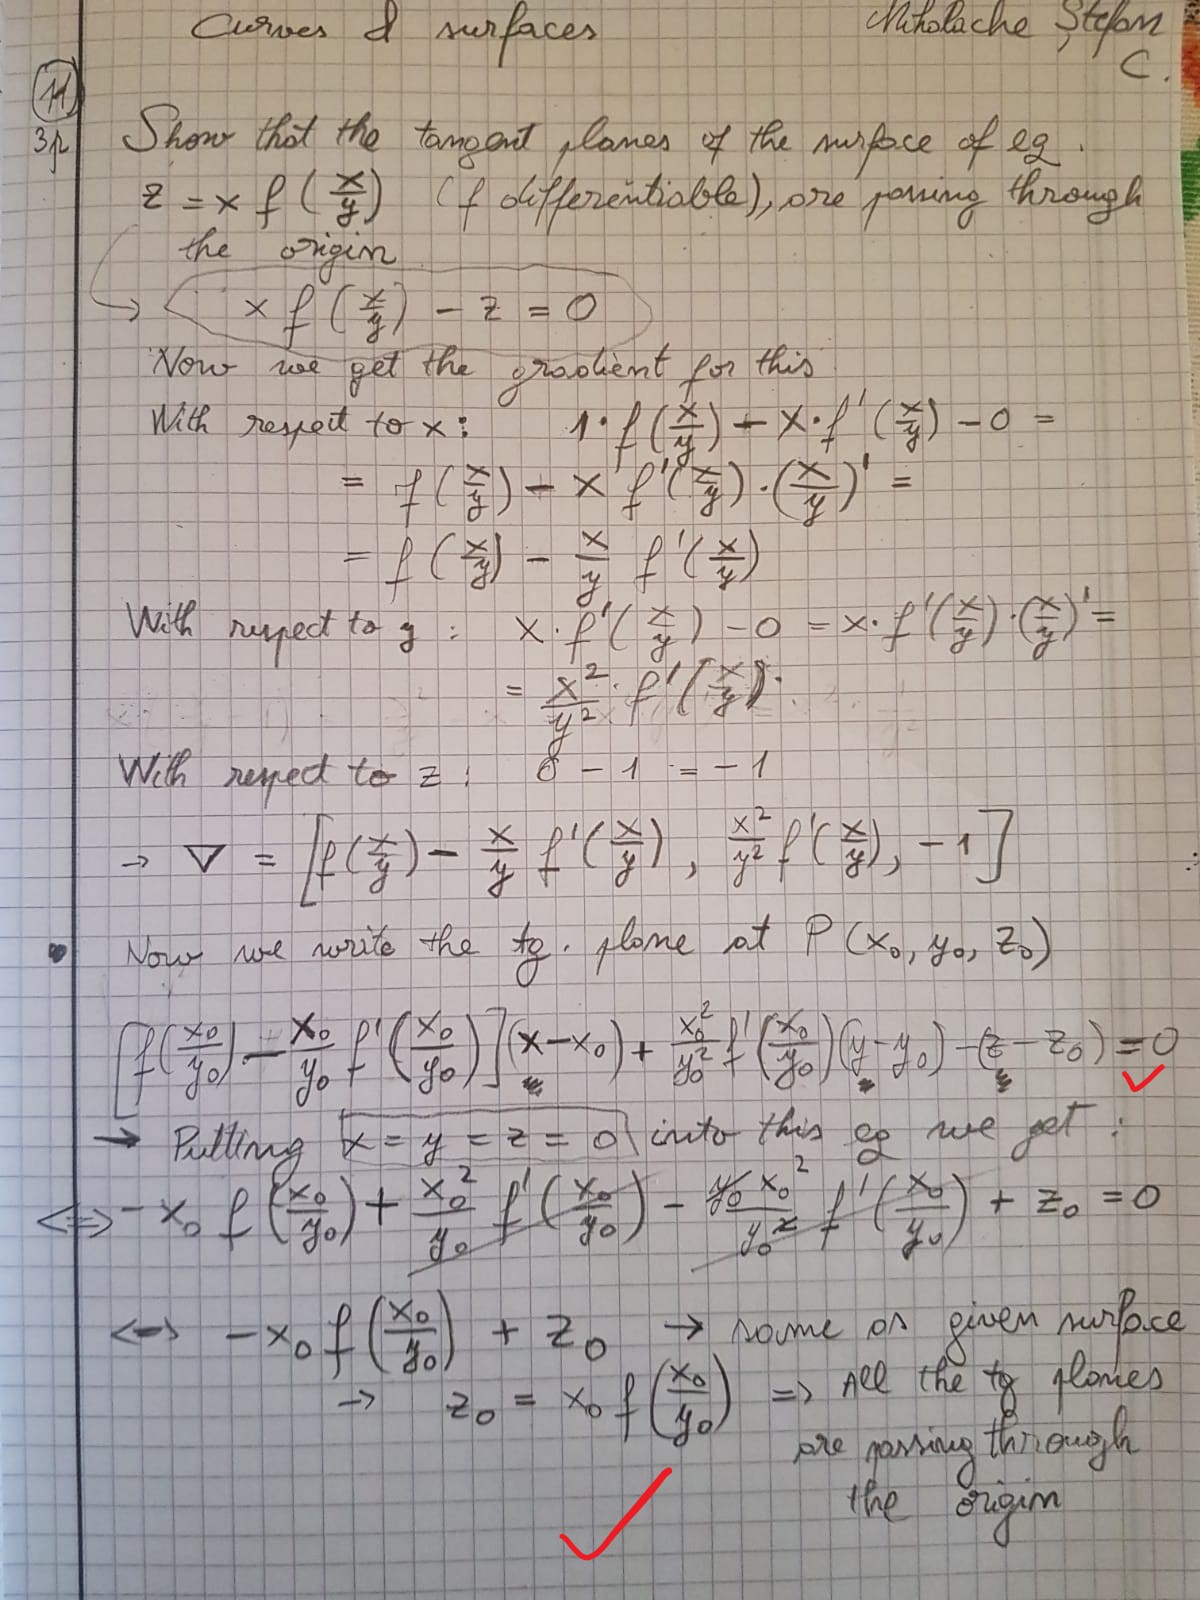 Curves & surfaces
Miholache Ștefan
C.
11
3p
Show that the tangent planes of the surface of eq.
z = x f (x/y) (f differentiable), are passing through
the origin
x f (x/y) - z = 0
Now we get the gradient for this
With respect to x: 1·f(x/y) - x·f'(x/y) - 0 =
= f(x/y) - x f'(x/y)·(x/y)' =
= f(x/y) - x/y f'(x/y)
With respect to y: x·f'(x/y) - 0 = x·f'(x/y)·(x/y)' =
= x²/y² · f'(x/y).
With respect to z: 0 - 1 = -1
→ ∇ = [f(x/y) - x/y f'(x/y), x²/y² f'(x/y), -1]
• Now we write the tg. plane at P(x₀, y₀, z₀)
[f(x₀/y₀) - x₀/y₀ f'(x₀/y₀)](x-x₀) + x₀²/y₀² f'(x₀/y₀)(y-y₀) - (z-z₀) = 0
→ Putting x = y = z = 0 into this eq we get:
<=> -x₀ f(x₀/y₀) + x₀²/y₀ f'(x₀/y₀) - y₀x₀²/y₀² f'(x₀/y₀) + z₀ = 0
<=> -x₀ f(x₀/y₀) + z₀ → same as given surface
→ z₀ = x₀ f(x₀/y₀) => All the tg planes
are passing through
the origin